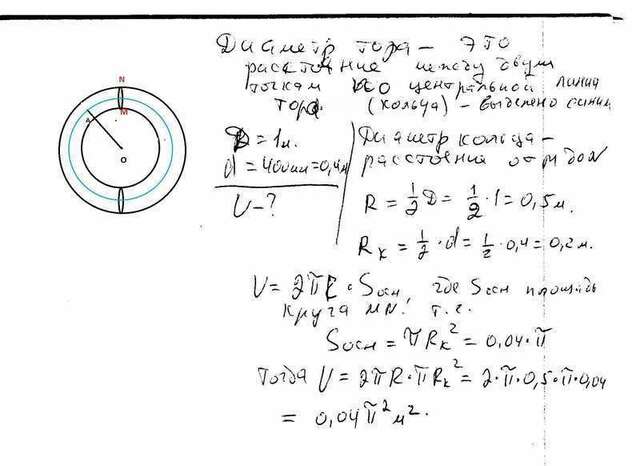 N
M
A
O
Диаметр тора - это
расстояние между двум
точкам по центральной линии
тора (кольца) - выделено синим
D = 1м.
d = 400мм = 0,4м
V - ?
Диаметр кольца -
расстояние от M до N
R = 1/2 D = 1/2 · 1 = 0,5 м.
Rк = 1/2 · d = 1/2 · 0,4 = 0,2 м.
V = 2πR · Sосн, где Sосн площадь
круга MN, т.е.
Sосн = πRк² = 0,04 · π
Тогда V = 2πR · πRк² = 2 · π · 0,5 · π · 0,04
= 0,04π² м².